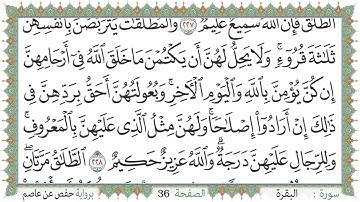 الطَّلَٰقَ فَإِنَّ ٱللَّهَ سَمِيعٌ عَلِيمٌ ٢٢٧ وَٱلْمُطَلَّقَٰتُ يَتَرَبَّصْنَ بِأَنفُسِهِنَّ
ثَلَٰثَةَ قُرُوٓءٍ وَلَا يَحِلُّ لَهُنَّ أَن يَكْتُمْنَ مَا خَلَقَ ٱللَّهُ فِىٓ أَرْحَامِهِنَّ
إِن كُنَّ يُؤْمِنَّ بِٱللَّهِ وَٱلْيَوْمِ ٱلْأَخِرِ وَبُعُولَتُهُنَّ أَحَقُّ بِرَدِّهِنَّ فِى
ذَٰلِكَ إِنْ أَرَادُوٓا۟ إِصْلَٰحًا وَلَهُنَّ مِثْلُ ٱلَّذِى عَلَيْهِنَّ بِٱلْمَعْرُوفِ
وَلِلرِّجَالِ عَلَيْهِنَّ دَرَجَةٌ وَٱللَّهُ عَزِيزٌ حَكِيمٌ ٢٢٨ ٱلطَّلَٰقُ مَرَّتَانِ
سورة : البقرة الصفحة 36 برواية حفص عن عاصم